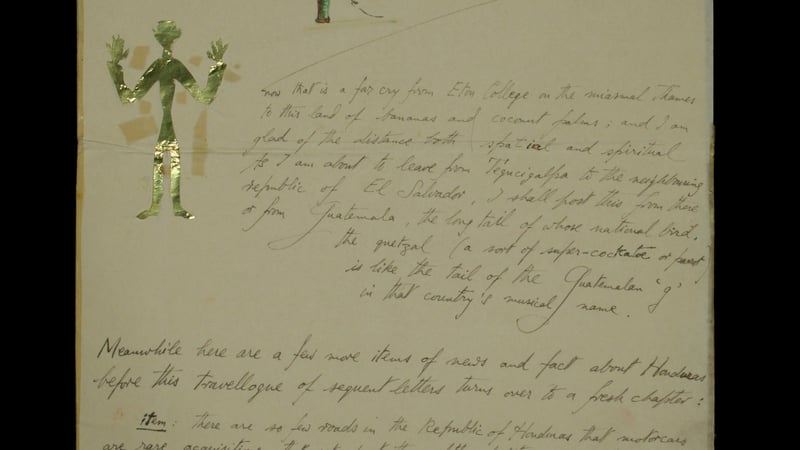 now that is a far cry from Eton College on the miasmal Thames
to this land of bananas and coconut palms; and I am
glad of the distance both spatial and spiritual
As I am about to leave from Tegucigalpa to the neighbouring
republic of El Salvador, I shall post this from there
or from Guatemala, the long tail of whose national bird,
the quetzal (a sort of super-cockatoo or parrot)
is like the tail of the Guatemalan 'g'
in that country's musical name.
Meanwhile here are a few more items of news and fact about Honduras
before this travellogue of sequent letters turns over to a fresh chapter:
item: there are so few roads in the Republic of Honduras that motorcars
are rare acquisitions